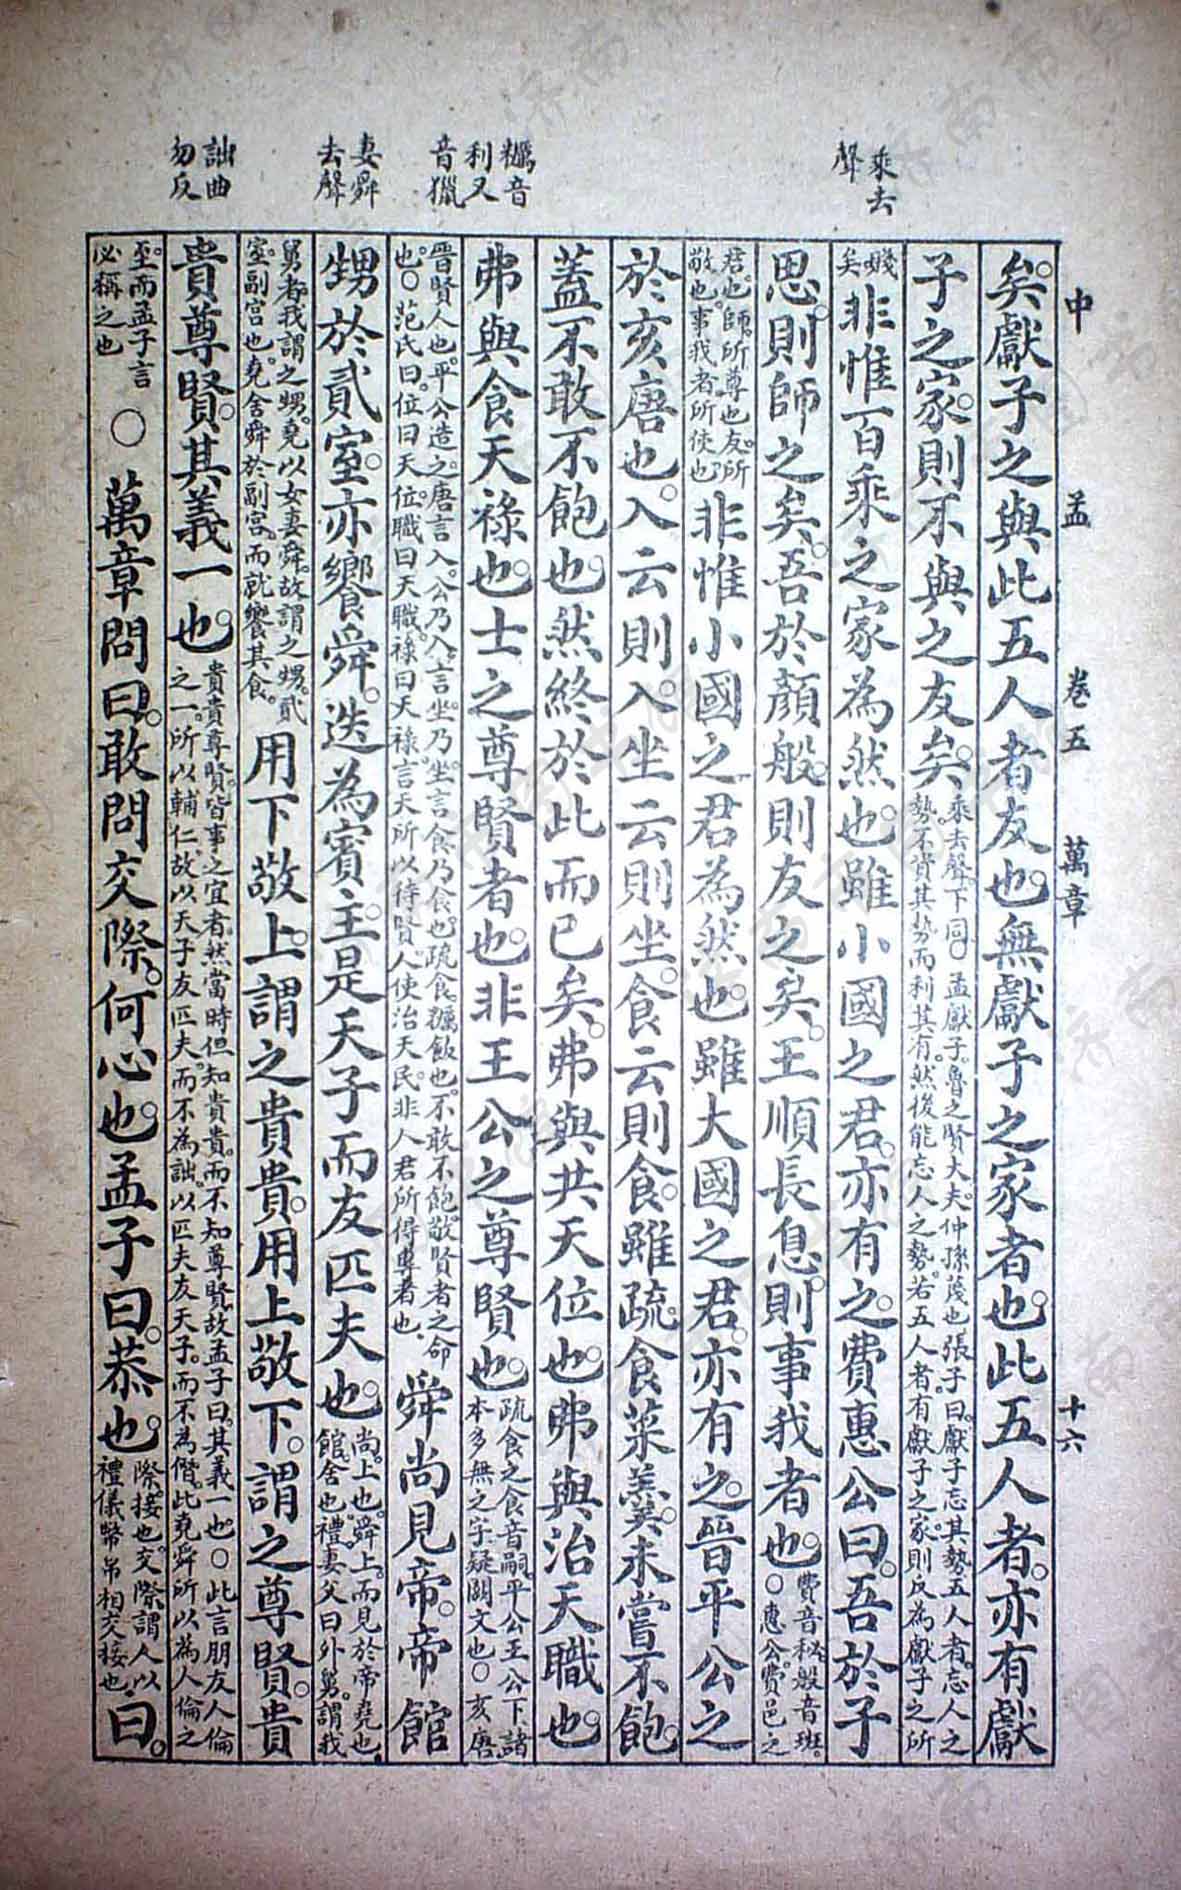 中　孟　卷五　萬章　十六
乘去
聲
糲音
利又
音獵
妻舜
去聲
詘曲
勿反
矣。獻子之與此五人者友也。無獻子之家者也。此五人者。亦有獻
子之家。則不與之友矣。
乘去聲。下同。○孟獻子。魯之賢大夫。仲孫蔑也。張子曰。獻子忘其勢。五人者。忘人之
勢。不資其勢而利其有。然後能忘人之勢。若五人者。有獻子之家。則反為獻子之所
賤
矣
非惟百乘之家為然也。雖小國之君。亦有之。費惠公曰。吾於子
思。則師之矣。吾於顏般。則友之矣。王順長息。則事我者也。
費音秘。般音班。
○惠公。費邑之
君也。師。所尊也。友。所
敬也。事我者。所使也
非惟小國之君為然也。雖大國之君。亦有之。晉平公之
於亥唐也。入云則入。坐云則坐。食云則食。雖疏食菜羹。未嘗不飽。
蓋不敢不飽也。然終於此而已矣。弗與共天位也。弗與治天職也。
弗與食天祿也。士之尊賢者也。非王公之尊賢也。
疏食之食音嗣。平公王公下。諸
本多無之字。疑闕文也。○亥唐
晉賢人也。平公造之。唐言入。公乃入。言坐。乃坐。言食。乃食也。疏食。糲飯也。不敢不飽。敬賢者之命
也。○范氏曰。位曰天位。職曰天職。祿曰天祿。言天所以待賢人。使治天民。非人君所得專者也。
舜尚見帝。帝館
甥於貳室。亦饗舜。迭為賓主。是天子而友匹夫也。
尚。上也。舜上。而見於帝堯也。
館。舍也。禮。妻父曰外舅。謂我
舅者。我謂之甥。堯以女妻舜。故謂之甥。貳
室。副宮也。堯舍舜於副宮。而就饗其食。
用下敬上。謂之貴貴。用上敬下。謂之尊賢。貴
貴尊賢。其義一也。
貴貴尊賢。皆事之宜者。然當時但知貴貴。而不知尊賢。故孟子曰。其義一也。○此言朋友人倫
之一。所以輔仁。故以天子友匹夫。而不為詘。以匹夫友天子。而不為僭。此堯舜所以為人倫之
至。而孟子言
必稱之也
○萬章問曰。敢問交際。何心也。孟子曰。恭也。
際。接也。交際。謂人以
禮儀幣帛相交接也。
曰。